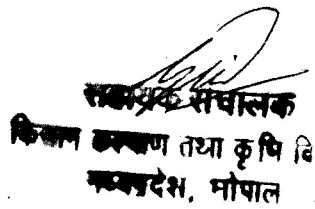 सहायक संचालक
किसान कल्याण तथा कृषि वि
मध्यप्रदेश, भोपाल